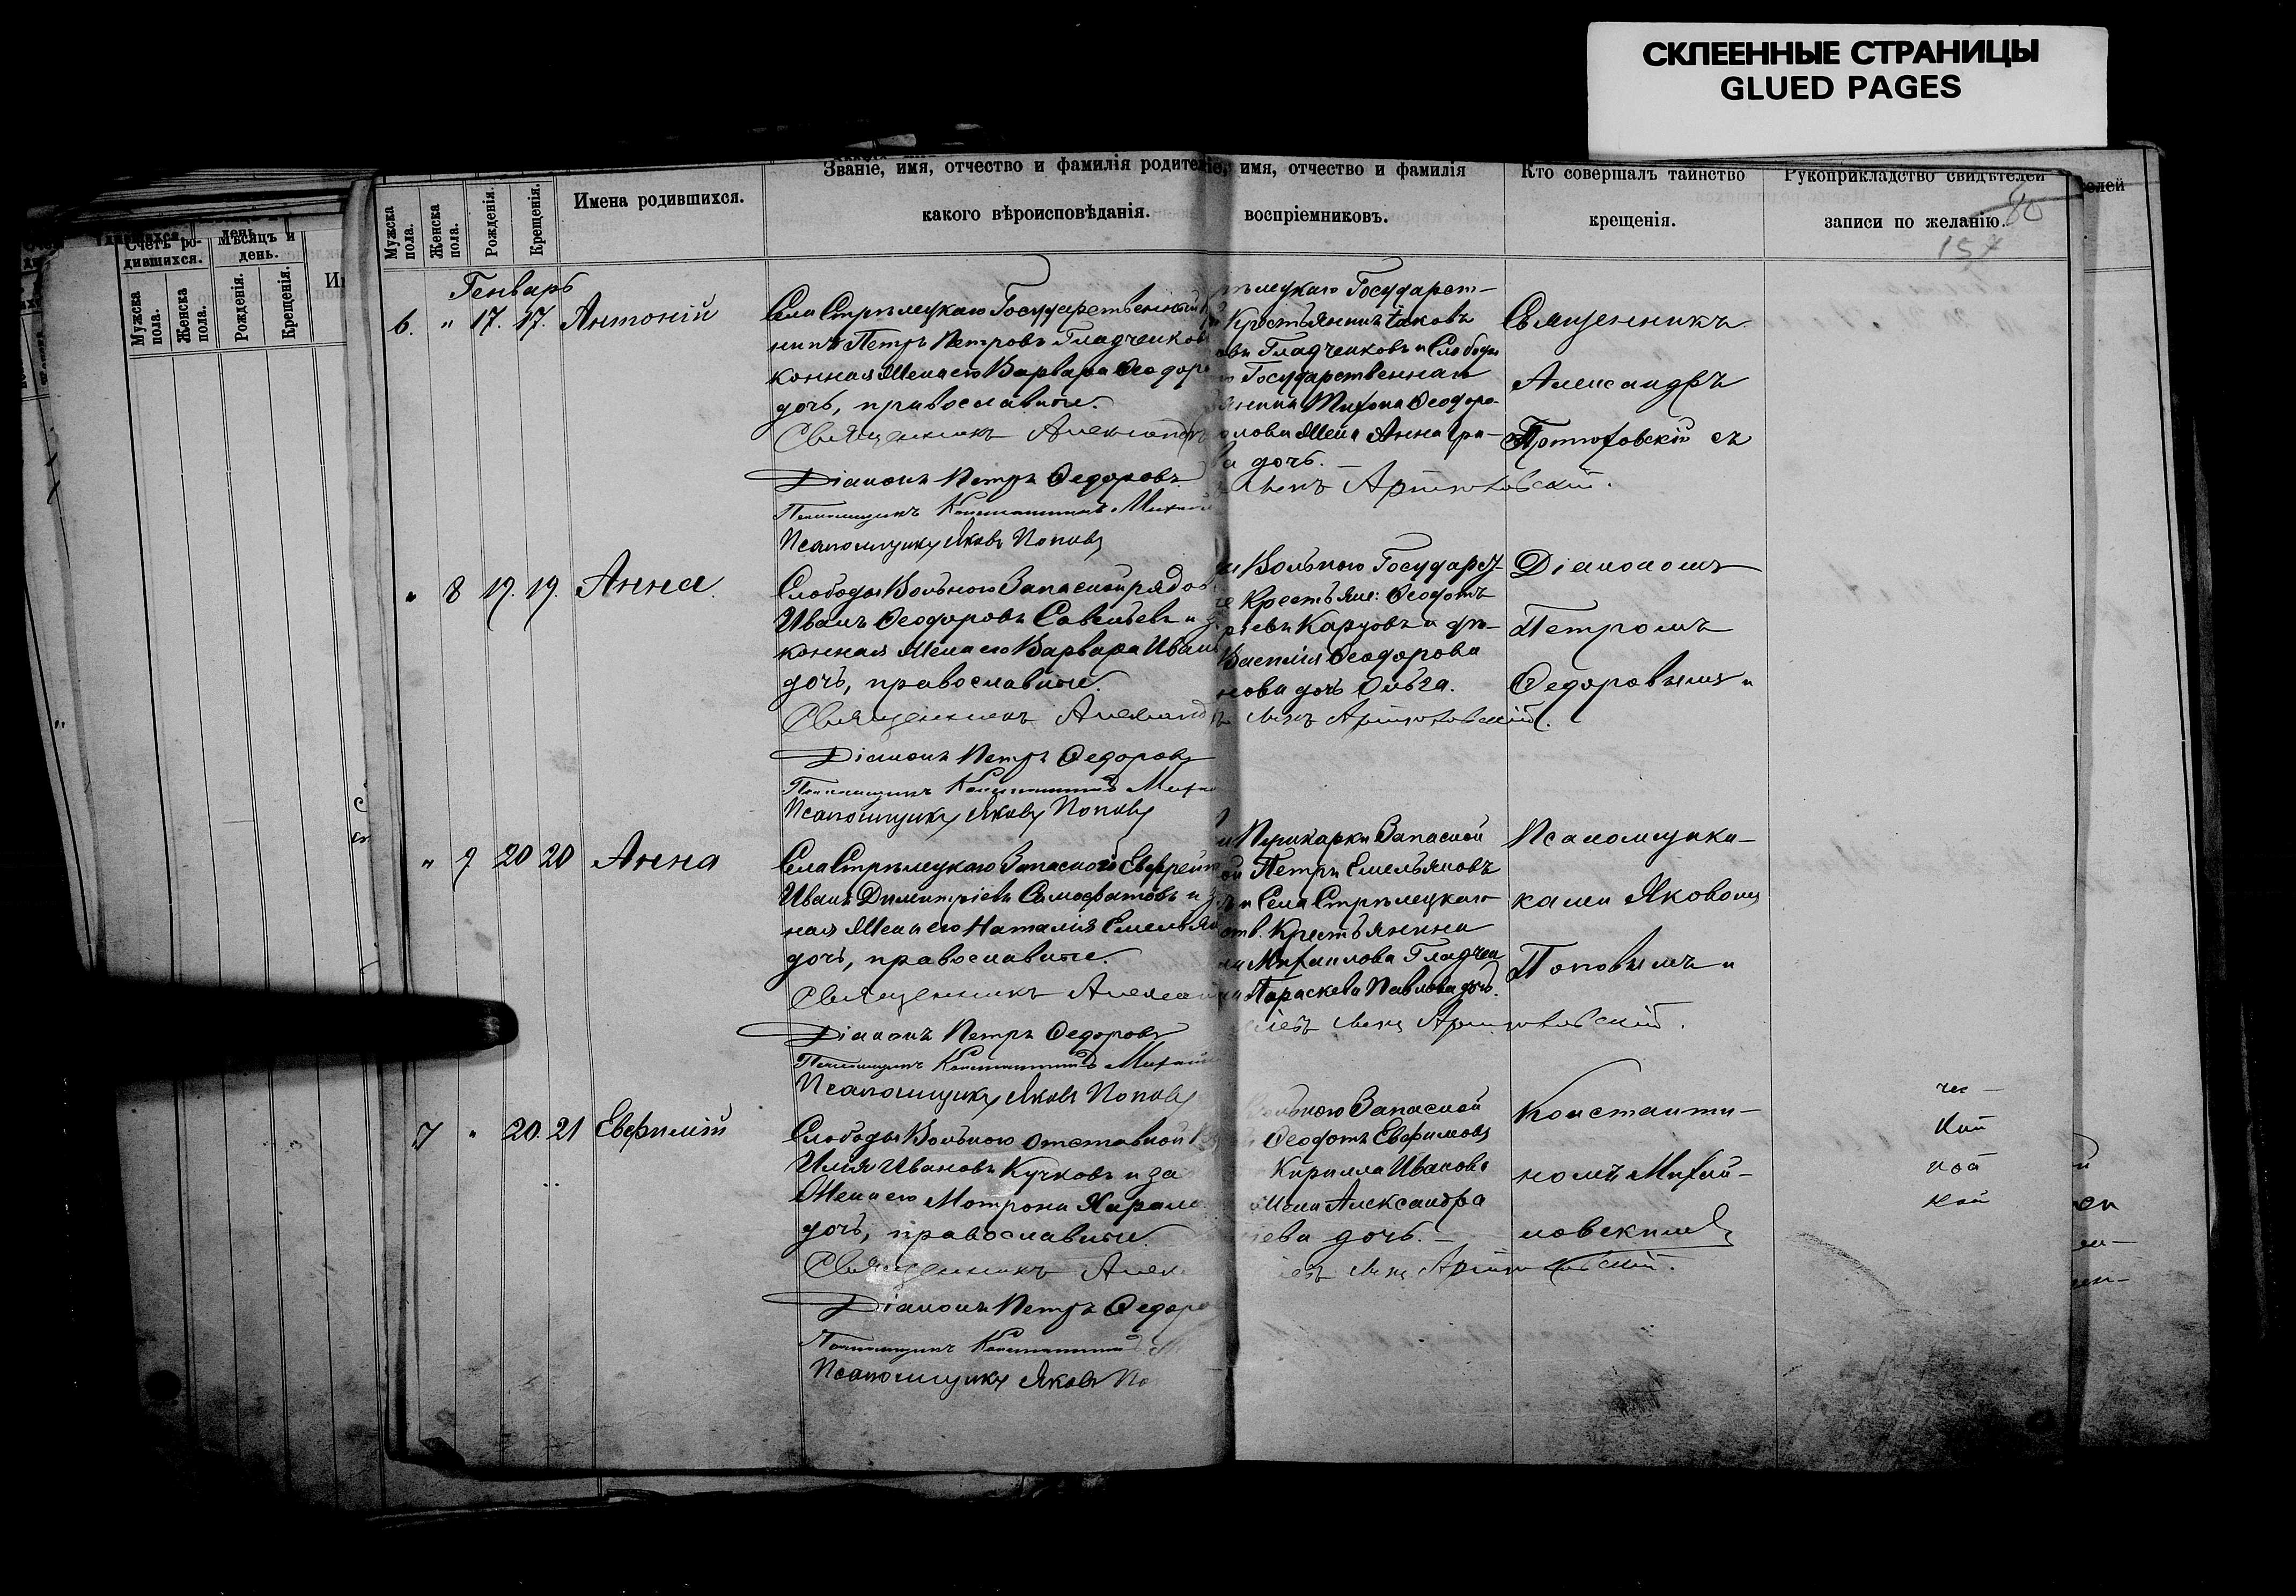 СКЛЕЕННЫЕ СТРАНИЦЫ
GLUED PAGES
Счетъ ро-
дившихся.
Мѣсяцъ и
день.
Мужска
пола.
Женска
пола.
Рожденія.
Крещенія.
Мужска
пола.
Женска
пола.
Рожденія.
Крещенія.
Имена родившихся.
Званіе, имя, отчество и фамилія родител
какого вѣроисповѣданія.
имя, отчество и фамилія
воспріемниковъ.
Кто совершалъ таинство
крещенія.
Рукоприкладство свидѣтелей
записи по желанію.
80
157
Генварь
6. " 17. 17. Антоній
Села Стрѣлецкаго Государственный
нинъ Петръ Петровъ Гладченков
конная жена его Варвара Ѳеодор
дочь, православные.
Священникъ Александръ
Діаконъ Петръ Ѳедоровъ
Псаломщикъ Константинъ Михай
Псаломщикъ Яковъ Поповъ
рѣлецкаго Государст-
Крестьянинъ Іаковъ
овъ Гладченковъ и Слободы
Государственнаго
янина Тихона Ѳеодоро-
жена Анна
дочь.
Артюховскій.
Священникъ
Александръ
Артюховскій съ
" 8 19. 19. Анна
Слободы Вольного Запасной рядов
Иванъ Ѳеодоровъ Савельевъ и з
конная жена его Варвара Иван
дочь, православные.
Священникъ Александ
Діаконъ Петръ Ѳедоровъ
Псаломщикъ Константинъ Миха
Псаломщикъ Яковъ Поповъ
Вольного Государ
Крестьян: Ѳеодотъ
Карцовъ и
Василія Ѳеодорова
нова дочь Ольга.
Артюховскій.
Діакономъ
Петромъ
Ѳедоровымъ и
" 9 20 20 Анна
Села Стрѣлецкаго Запасной Ефрейт
Иванъ Димитріевъ Самофатовъ и з
ная жена его Наталія Емельян
дочь, православные.
Священникъ Алексан
Діаконъ Петръ Ѳедоровъ
Псаломщикъ Константинъ Михай
Псаломщикъ Яковъ Поповъ
Пушкарки Запасной
Петръ Емельяновъ
и Села Стрѣлецкаго
ств. Крестьянина
Михаилова Гладчен
Параскева Павлова дочь.
Артюховскій.
Псаломщика-
ками Яковомъ
Поповымъ и
7 " 20. 21 Евфимій
Слободы Вольного отставной
Илія Ивановъ Кучковъ и за
жена его Мотрона Харала
дочь, православные.
Священникъ Алек
Діаконъ Петръ Ѳедоро
Псаломщикъ Константинъ
Псаломщикъ Яковъ По
Вольного Запасной
Ѳеодотъ Евфимовъ
Кирилла Иванова
жена Александра
ева дочь.
Артюховскій.
Константи-
номъ Михай-
ловскимъ